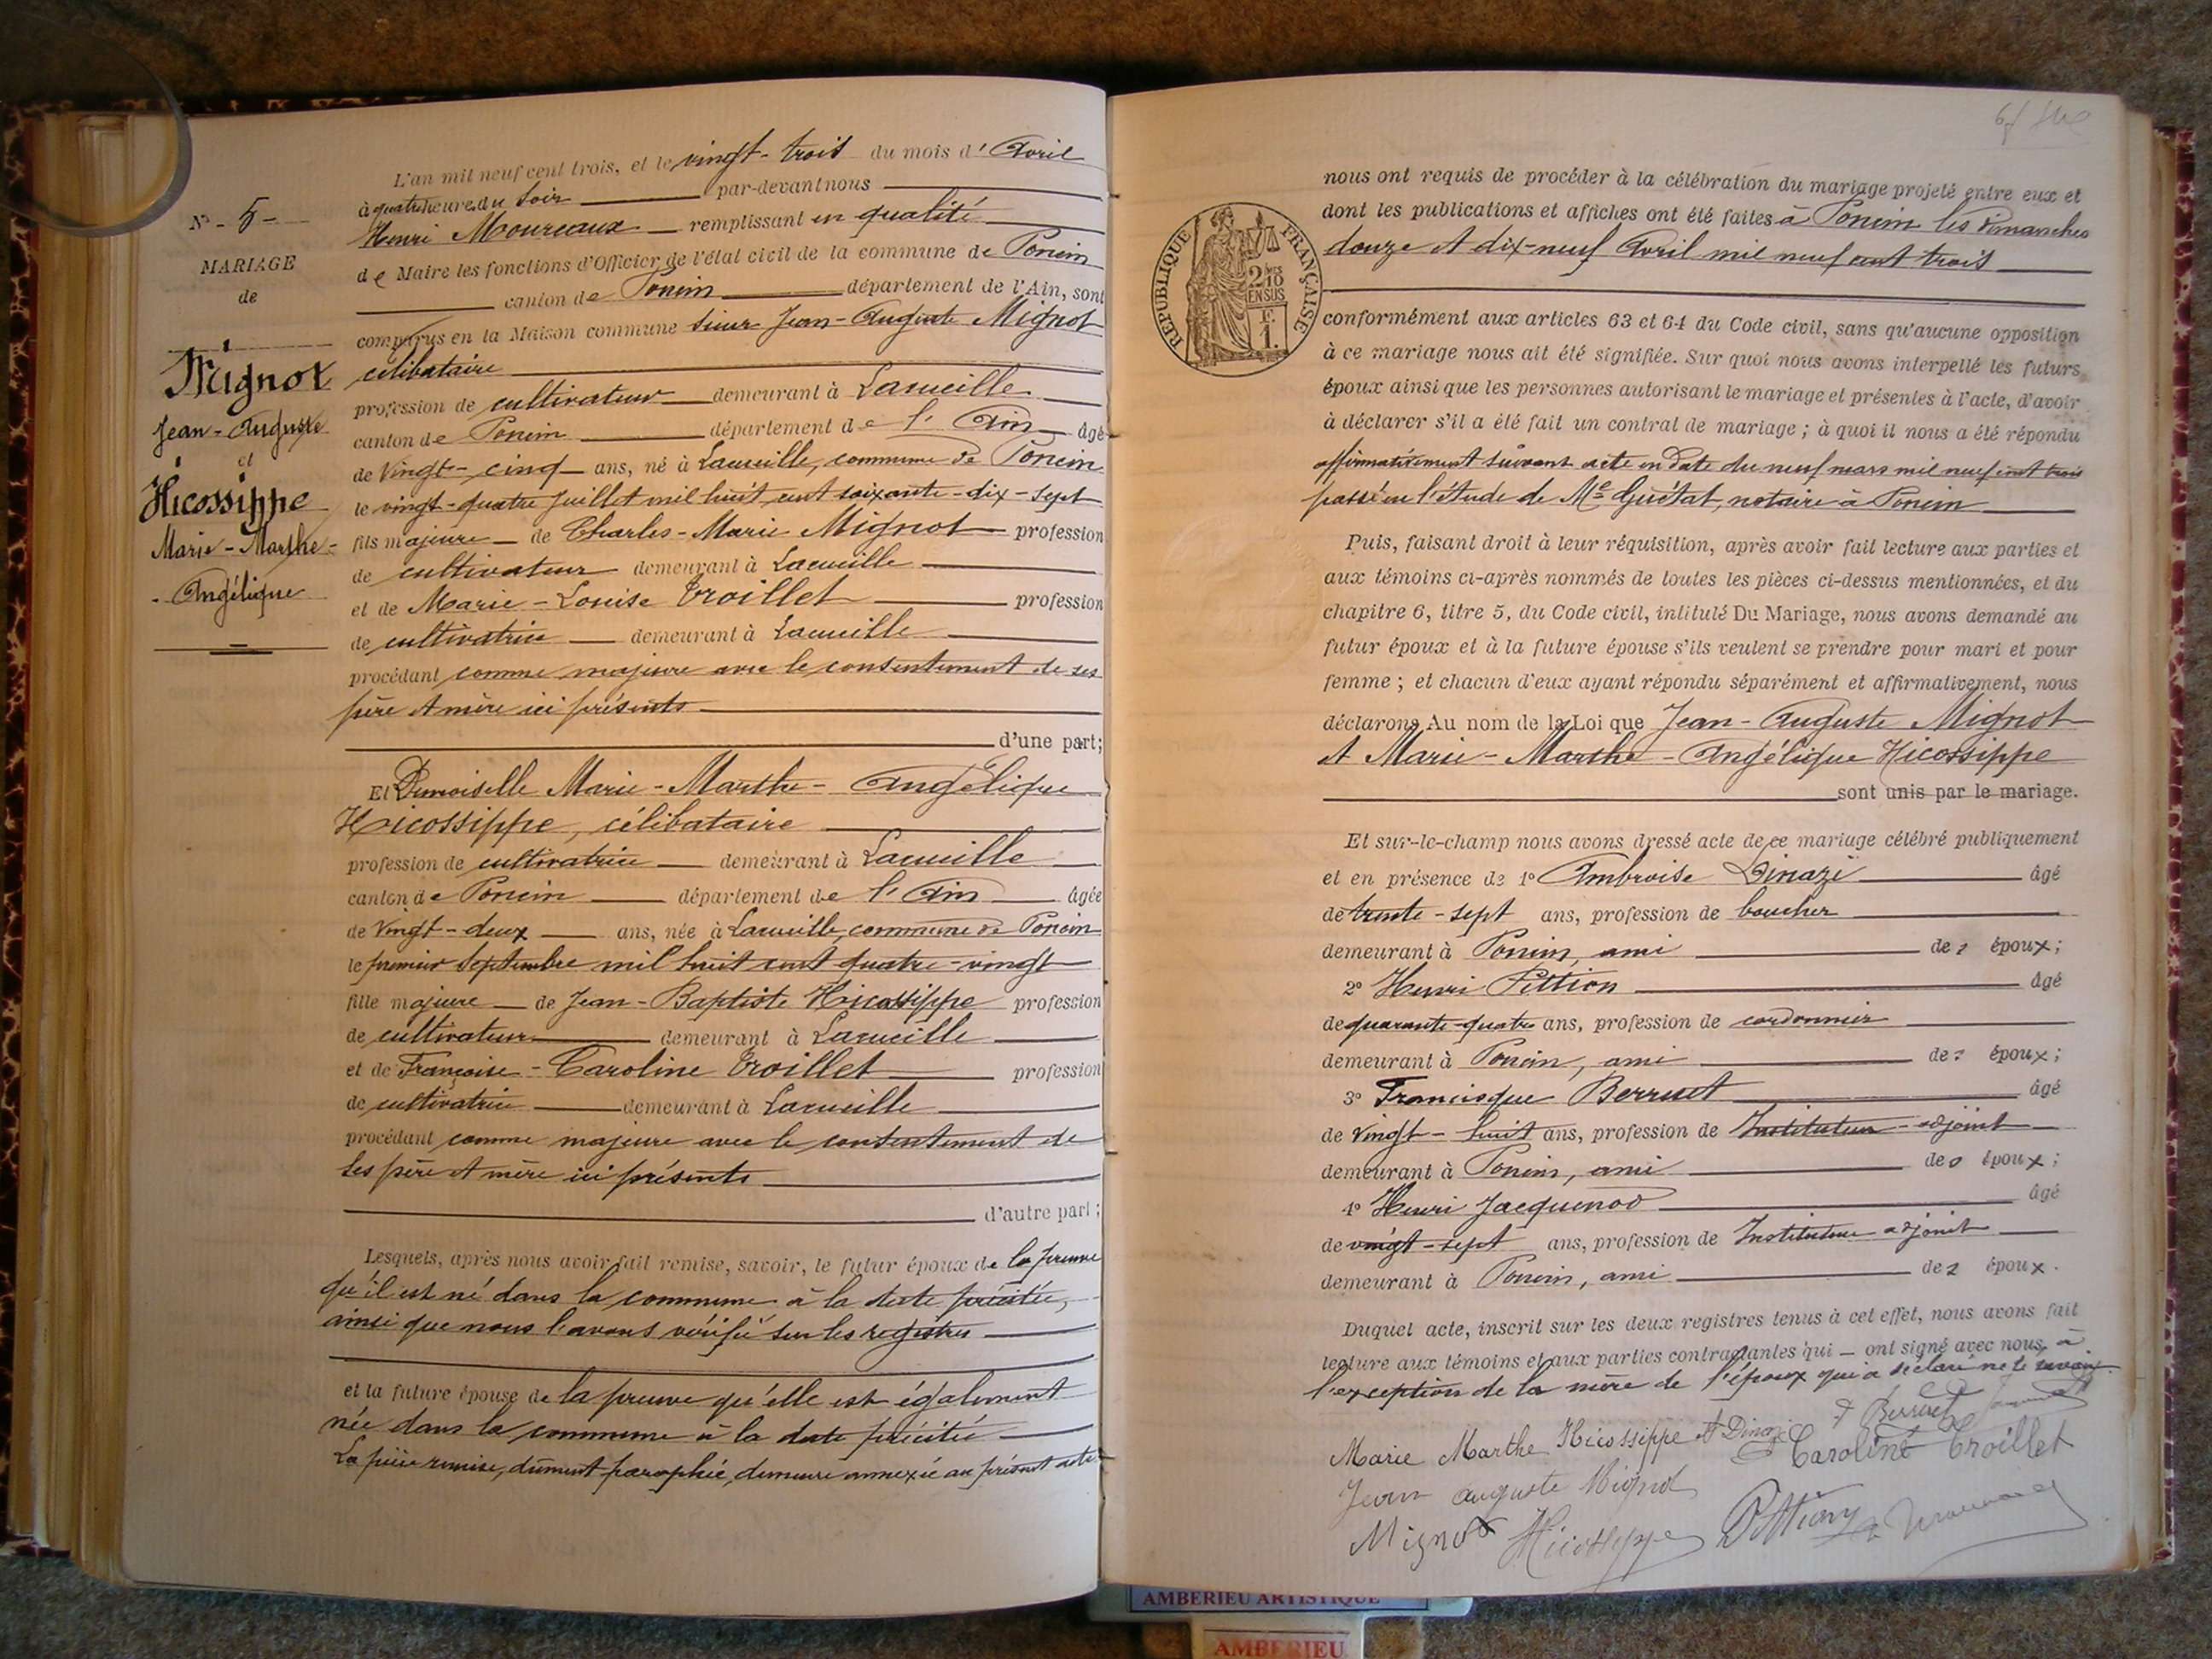 N° - 5 -
MARIAGE
de
Mignot
Jean-Auguste
et
Hicossippe
Marie-Marthe-
-Angélique
L'an mil neuf cent trois, et le vingt-trois du mois d'Avril
à quatre heure du soir par-devant nous
Henri Moureaux remplissant en qualité
de Maire les fonctions d'Officier de l'état civil de la commune de Poncin
canton de Poncin département de l'Ain, sont
comparus en la Maison commune sieur Jean-Auguste Mignot
célibataire
profession de cultivateur demeurant à Lacueille
canton de Poncin département de l'Ain âgé
de Vingt-cinq ans, né à Lacueille, commune de Poncin
le vingt-quatre juillet mil huit cent soixante-dix-sept
fils majeure de Charles-Marie Mignot profession
de cultivateur demeurant à Lacueille
et de Marie-Louise Troillet profession
de cultivatrice demeurant à Lacueille
procédant comme majeure avec le consentement de ses
père et mère ici présents
d'une part;
Et Demoiselle Marie-Marthe-Angélique
Hicossippe, célibataire
profession de cultivatrice demeurant à Lacueille
canton de Poncin département de l'Ain âgée
de Vingt-deux ans, née à Lacueille, commune de Poncin
le premier Septembre mil huit cent quatre-vingt
fille majeure de Jean-Baptiste Hicossippe profession
de cultivateur demeurant à Lacueille
et de Françoise-Caroline Troillet profession
de cultivatrice demeurant à Lacueille
procédant comme majeure avec le consentement de
ses père et mère ici présents
d'autre part;
Lesquels, après nous avoir fait remise, savoir, le futur époux de la preuve
qu'il est né dans la commune à la date précitée,
ainsi que nous l'avons vérifié sur les registres
et la future épouse de la preuve qu'elle est également
née dans la commune à la date précitée
La pièce remise, dûment paraphée, demeure annexée au présent acte
nous ont requis de procéder à la célébration du mariage projeté entre eux et
dont les publications et affiches ont été faites à Poncin les Dimanches
douze et dix-neuf Avril mil neuf cent trois
RÉPUBLIQUE FRANÇAISE
2/10
EN SUS
F.
1.
conformément aux articles 63 et 64 du Code civil, sans qu'aucune opposition
à ce mariage nous ait été signifiée. Sur quoi nous avons interpellé les futurs
époux ainsi que les personnes autorisant le mariage et présentes à l'acte, d'avoir
à déclarer s'il a été fait un contrat de mariage; à quoi il nous a été répondu
affirmativement suivant acte en date du neuf mars mil neuf cent trois
passé en l'étude de Me Guétat, notaire à Poncin
Puis, faisant droit à leur réquisition, après avoir fait lecture aux parties et
aux témoins ci-après nommés de toutes les pièces ci-dessus mentionnées, et du
chapitre 6, titre 5, du Code civil, intitulé Du Mariage, nous avons demandé au
futur époux et à la future épouse s'ils veulent se prendre pour mari et pour
femme; et chacun d'eux ayant répondu séparément et affirmativement, nous
déclarons Au nom de la Loi que Jean-Auguste Mignot
et Marie-Marthe-Angélique Hicossippe
sont unis par le mariage.
Et sur-le-champ nous avons dressé acte de ce mariage célébré publiquement
et en présence de 1° Ambroise Dinazé âgé
de trente-sept ans, profession de boucher
demeurant à Poncin, ami des époux;
2° Henri Pittion âgé
de quarante-quatre ans, profession de cordonnier
demeurant à Poncin, ami des époux;
3° Francisque Berruet âgé
de vingt-huit ans, profession de Instituteur-adjoint
demeurant à Poncin, ami des époux;
4° Henri Jacquenod âgé
de vingt-sept ans, profession de Instituteur adjoint
demeurant à Poncin, ami des époux.
Duquel acte, inscrit sur les deux registres tenus à cet effet, nous avons fait
lecture aux témoins et aux parties contractantes qui ont signé avec nous, à
l'exception de la mère de l'époux qui a déclaré ne le savoir
F Berruet
Marie Marthe Hicossippe A Dinazé Caroline Troillet
Jean auguste Mignot
Mignot Hicossippe Pittion
AMBERIEU ARTISTIQUE
AMBERIEU